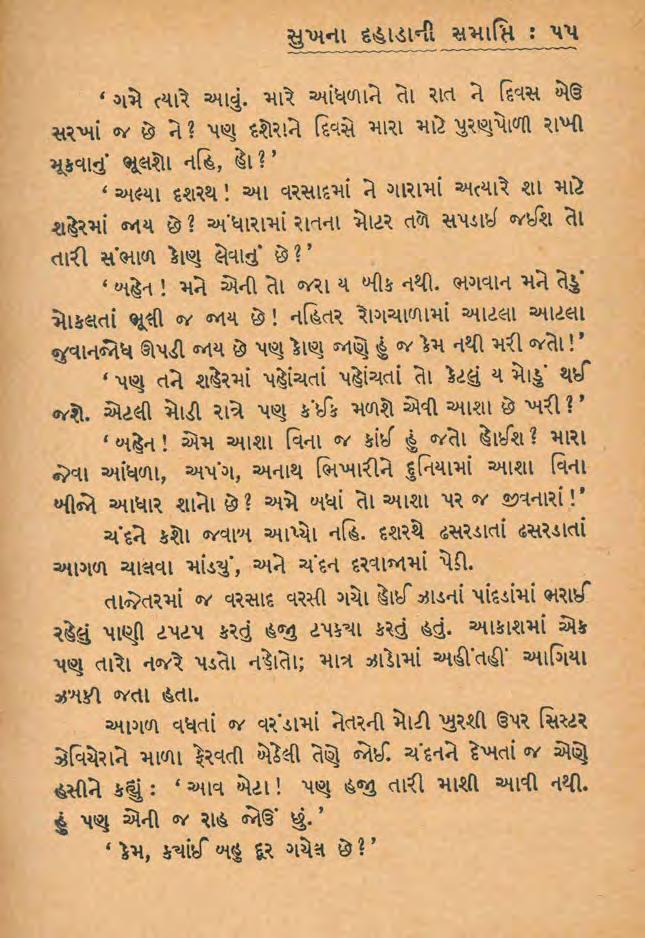 સુખના દહાડાની સમાપ્તિ : ૫૫
‘ ગમે ત્યારે આવું. મારે આંધળાને તો રાત ને દિવસ બેઉ
સરખાં જ છે ને? પણ દશેરાને દિવસે મારા માટે પુરણપોળી રાખી
મૂકવાનું ભૂલશો નહિ, હો?’
‘ અલ્યા દશરથ! આ વરસાદમાં ને ગારામાં અત્યારે શા માટે
શહેરમાં જાય છે? અંધારામાં રાતના મોટર તળે સપડાઈ જઈશ તો
તારી સંભાળ કોણ લેવાનું છે?’
‘ બહેન! મને એની તો જરા ય બીક નથી. ભગવાન મને તેડું
મોકલતાં ભૂલી જ જાય છે! નહિતર રોગચાળામાં આટલા આટલા
જુવાનજોધ ઊપડી જાય છે પણ કોણ જાણે હું જ કેમ નથી મરી જતો!’
‘ પણ તને શહેરમાં પહોંચતાં પહોંચતાં તો કેટલું ય મોડું થઈ
જશે. એટલી મોડી રાત્રે પણ કંઈક મળશે એવી આશા છે ખરી?’
‘ બહેન! એમ આશા વિના જ કાંઈ હું જતો હોઈશ? મારા
જેવા આંધળા, અપંગ, અનાથ ભિખારીને દુનિયામાં આશા વિના
બીજો આધાર શાનો છે? અમે બધાં તો આશા પર જ જીવનારાં!’
ચંદને કશો જવાબ આપ્યો નહિ. દશરથે ઢસરડાતાં ઢસરડાતાં
આગળ ચાલવા માંડયું, અને ચંદન દરવાજામાં પેઠી.
તાજેતરમાં જ વરસાદ વરસી ગયો હોઈ ઝાડનાં પાંદડાંમાં ભરાઈ
રહેલું પાણી ટપટપ કરતું હજુ ટપક્યા કરતું હતું. આકાશમાં એક
પણ તારો નજરે પડતો નહોતો; માત્ર ઝાડોમાં અહીંતહીં આગિયા
ઝબકી જતા હતા.
આગળ વધતાં જ વરંડામાં નેતરની મોટી ખુરશી ઉપર સિસ્ટર
ઝેવિયેરાને માળા ફેરવતી બેઠેલી તેણે જોઈ. ચંદનને દેખતાં જ એણે
હસીને કહ્યું : ‘ આવ બેટા! પણ હજુ તારી માશી આવી નથી.
હું પણ એની જ રાહ જોઉં છું.’
‘ કેમ, કયાંઈ બહુ દૂર ગયેલ છે?’